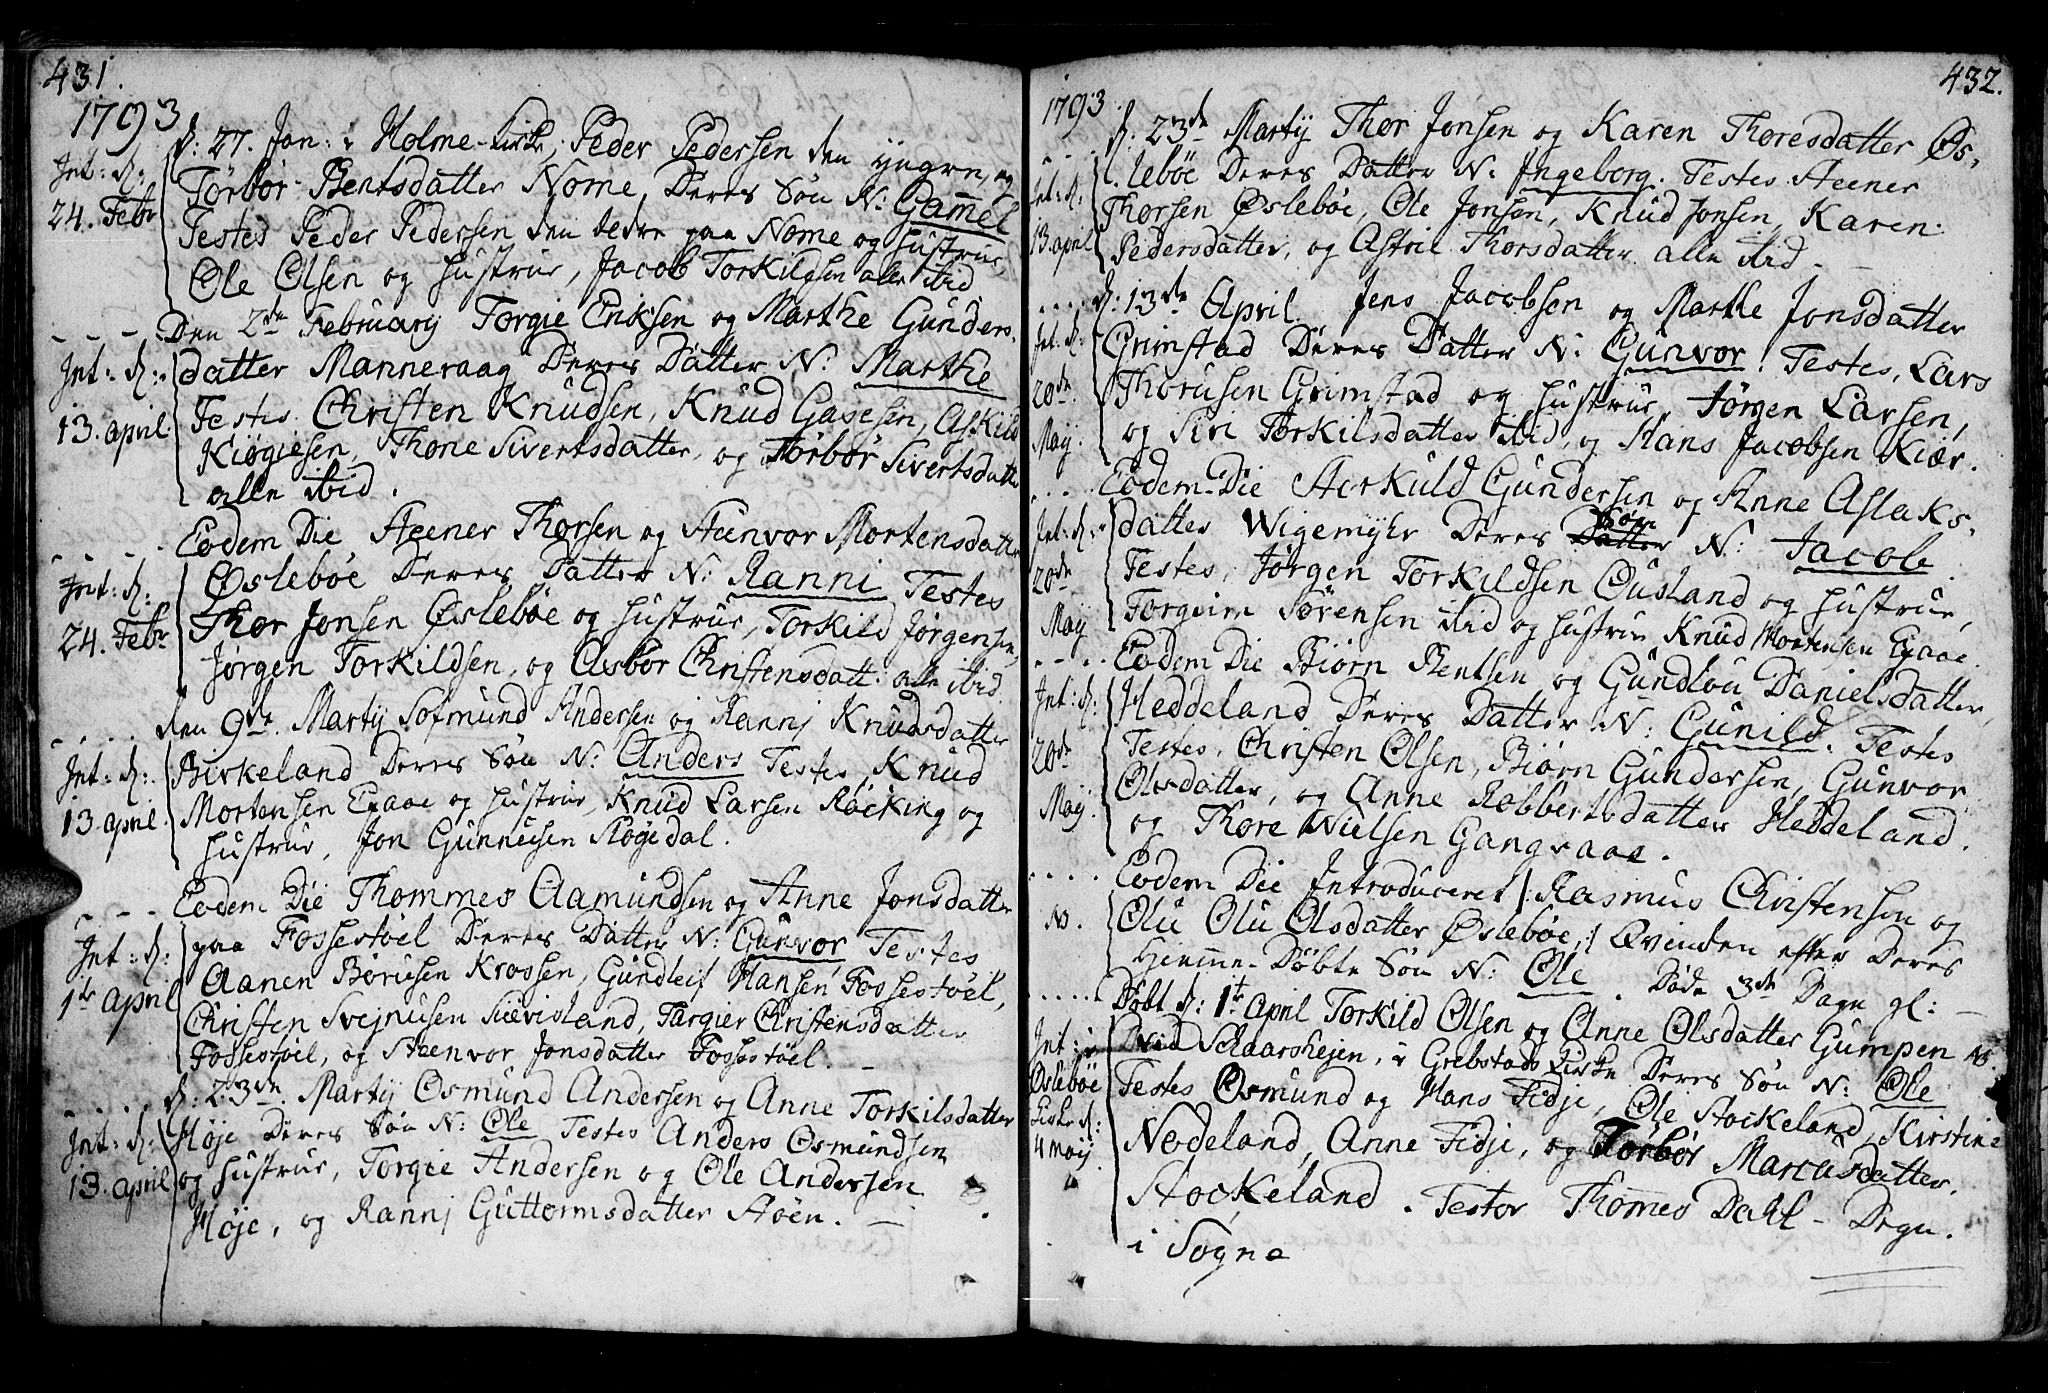 431.
1793
d: 27. Jan: i Holme-Kirke, Peder Pedersen den yngre, og
Int: d:
Torbor Bentsdatter Nome, Deres Søn N: Gamel
24. Febr
Testes Peder Pedersen den Eldre paa Nome og Hustrue,
Ole Olsen og Hustrue, Jacob Torkildsen alle ibid
Den 2de February Torgie Eriksen og Marthe Gunders-
Int: d:
datter Manneraag Deres Datter N: Marthe
13. april
Testes Christen Knudsen, Knud Gasesen, Askild
Kiøgiesen, Thone Sivertsdatter, og Torbor Sivertsdatter
alle ibid.
Eodem Die Steener Thorsen og Steenvor Mortensdatter
Int: d:
Øslebøe Deres Datter N: Ranni Testes
24. Febr
Thor Jonsen Øslebøe og Hustrue, Torkild Jørgensen,
Jørgen Torkildsen, og Asbor Christensdatt: alle ibid
den 9de. Martij Sofmund Andersen og Rannj Knudsdatter
Int: d:
Birkeland Deres Søn N: Anders Testes, Knud
13. april
Mortensen Egaae og Hustrue, Knud Larsen Røcking og
Hustrue, Jon Gunnusen Støgedal.
Eodem Die Thommes Aamundsen og Anne Jonsdatter
Int: d:
paa Fossestøel Deres Datter N: Gunvor Testes
1te april
Aanen Børusen Krossen, Gundleif Hansen Fossestøel,
Christen Svejnusen Sievisland, Targier Christensdatter
Fossestøel, og Steenvor Jonsdatter Fossestøel. –
d. 23de. Martij Osmund Andersen og Anne Torkilsdatter
Int: d:
Høje Deres Søn N: Ole Testes Anders Osmundsen
13. april
og Hustrue, Torgie Andersen og Ole Andersen
Høje, og Rannj Guttormsdatter Støen. –
432.
1793
d: 23de Martij Thor Jonsen og Karen Thoresdatter Øs-
Int: d:
lebøe Deres Datter N: Ingeborg. Testes Steener
13 april
Thorsen Øslebøe, Ole Jonsen, Knud Jonsen, Karen
Pedersdatter, og Astrie Thorsdatter alle ibid –
d: 13de April. Jens Jacobsen og Marthe Jonsdatter
Int: d:
Grimstad Deres Datter N: Gunvor. Testes, Lars
20de
Thorusen Grimstad og Hustrue, Jørgen Larsen,
Maij
og Siri Torkilsdatter ibid, og Hans Jacobsen Kiær.
Eodem-Die Storkuld Gundersen og Anne Aslaks-
Int: d:
datter Wigemyhr Deres Datter Søn N: Jacob
20de
Testes, Jørgen Torkildsen Ousland og Hustrue,
Maij
Torgeim Sørensen ibid og Hustrue Knud Mortensen Egaae
Eodem Die Biørn Bentsen og Gundlou Danielsdatter,
Int: d:
Heddeland Deres Datter N: Gunild. Testes
20de
Testes, Christen Olsen, Biørn Gundersen, Gunvor
Maij.
Olsdatter, og Anne Robbertsdatter Heddeland.
og Thore Nielsen Gangsaae.
Eodem Die Introduceret /: Rasmus Christensen og
N.
Olu Olu Olsdatter Øslebøe, :/ Qvinden efter Deres
Hiemme-Døbte Søn N: Ole. Døde 3de Dage gl: –
Døbt d: 1te April Torkild Olsen og Anne Olsdatter Gumpen
Int: i
Skaarshejen, i Grebstads Kirke Deres Søn N: Ole
Øslebøe
Testes Osmund og Hans Fidje, Ole Stockeland, Kirstine
Kirke d:
4 maij
Nodeland, Anne Fidje, og Torbør Marcusdatter.
Stockeland. Testor Thomes Dahl – Degn.
i Sogne